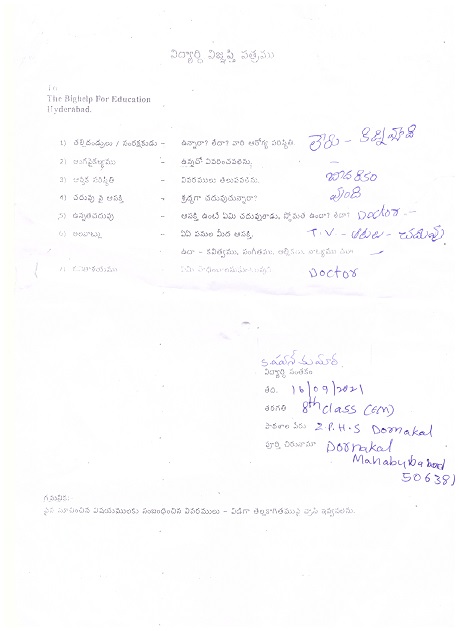 విద్యార్థి విజ్ఞప్తి పత్రము
To
The Bighelp For Education
Hyderabad.
1) తల్లిదండ్రులు / సంరక్షకుడు - ఉన్నారా? లేదా? వారి ఆరోగ్య పరిస్థితి లేరు -
2) అంగవైకల్యము - ఉన్నచో వివరించవలెను. -
3) ఆర్థిక పరిస్థితి - వివరములు తెలుపవలెను.
4) చదువు పై ఆసక్తి - శ్రద్ధగా చదువుచున్నారా? ఉంది
5) ఉన్నతచదువు - ఆసక్తి ఉంటే ఏమి చదువుతాడు, ధ్యేయత ఉందా? లేదా? Doctor -
6) అలవాట్లు - ఏఏ పనుల మీద ఆసక్తి. T.V - ఆటలు - చదువు
ఉదా - కవిత్వము, సంగీతము,
7) Doctor
విద్యార్థి సంతకం
తేది. 16/09/2021
తరగతి 8th class (EM)
పాఠశాల పేరు Z.P.H.S Dornakal
పూర్తి చిరునామా Dornakal
Mahabubabad
506381
గమనిక:
పైన సూచించిన విషయములకు సంబంధించిన వివరములు - విడిగా తెల్లకాగితముపై వ్రాసి ఇవ్వవలెను.